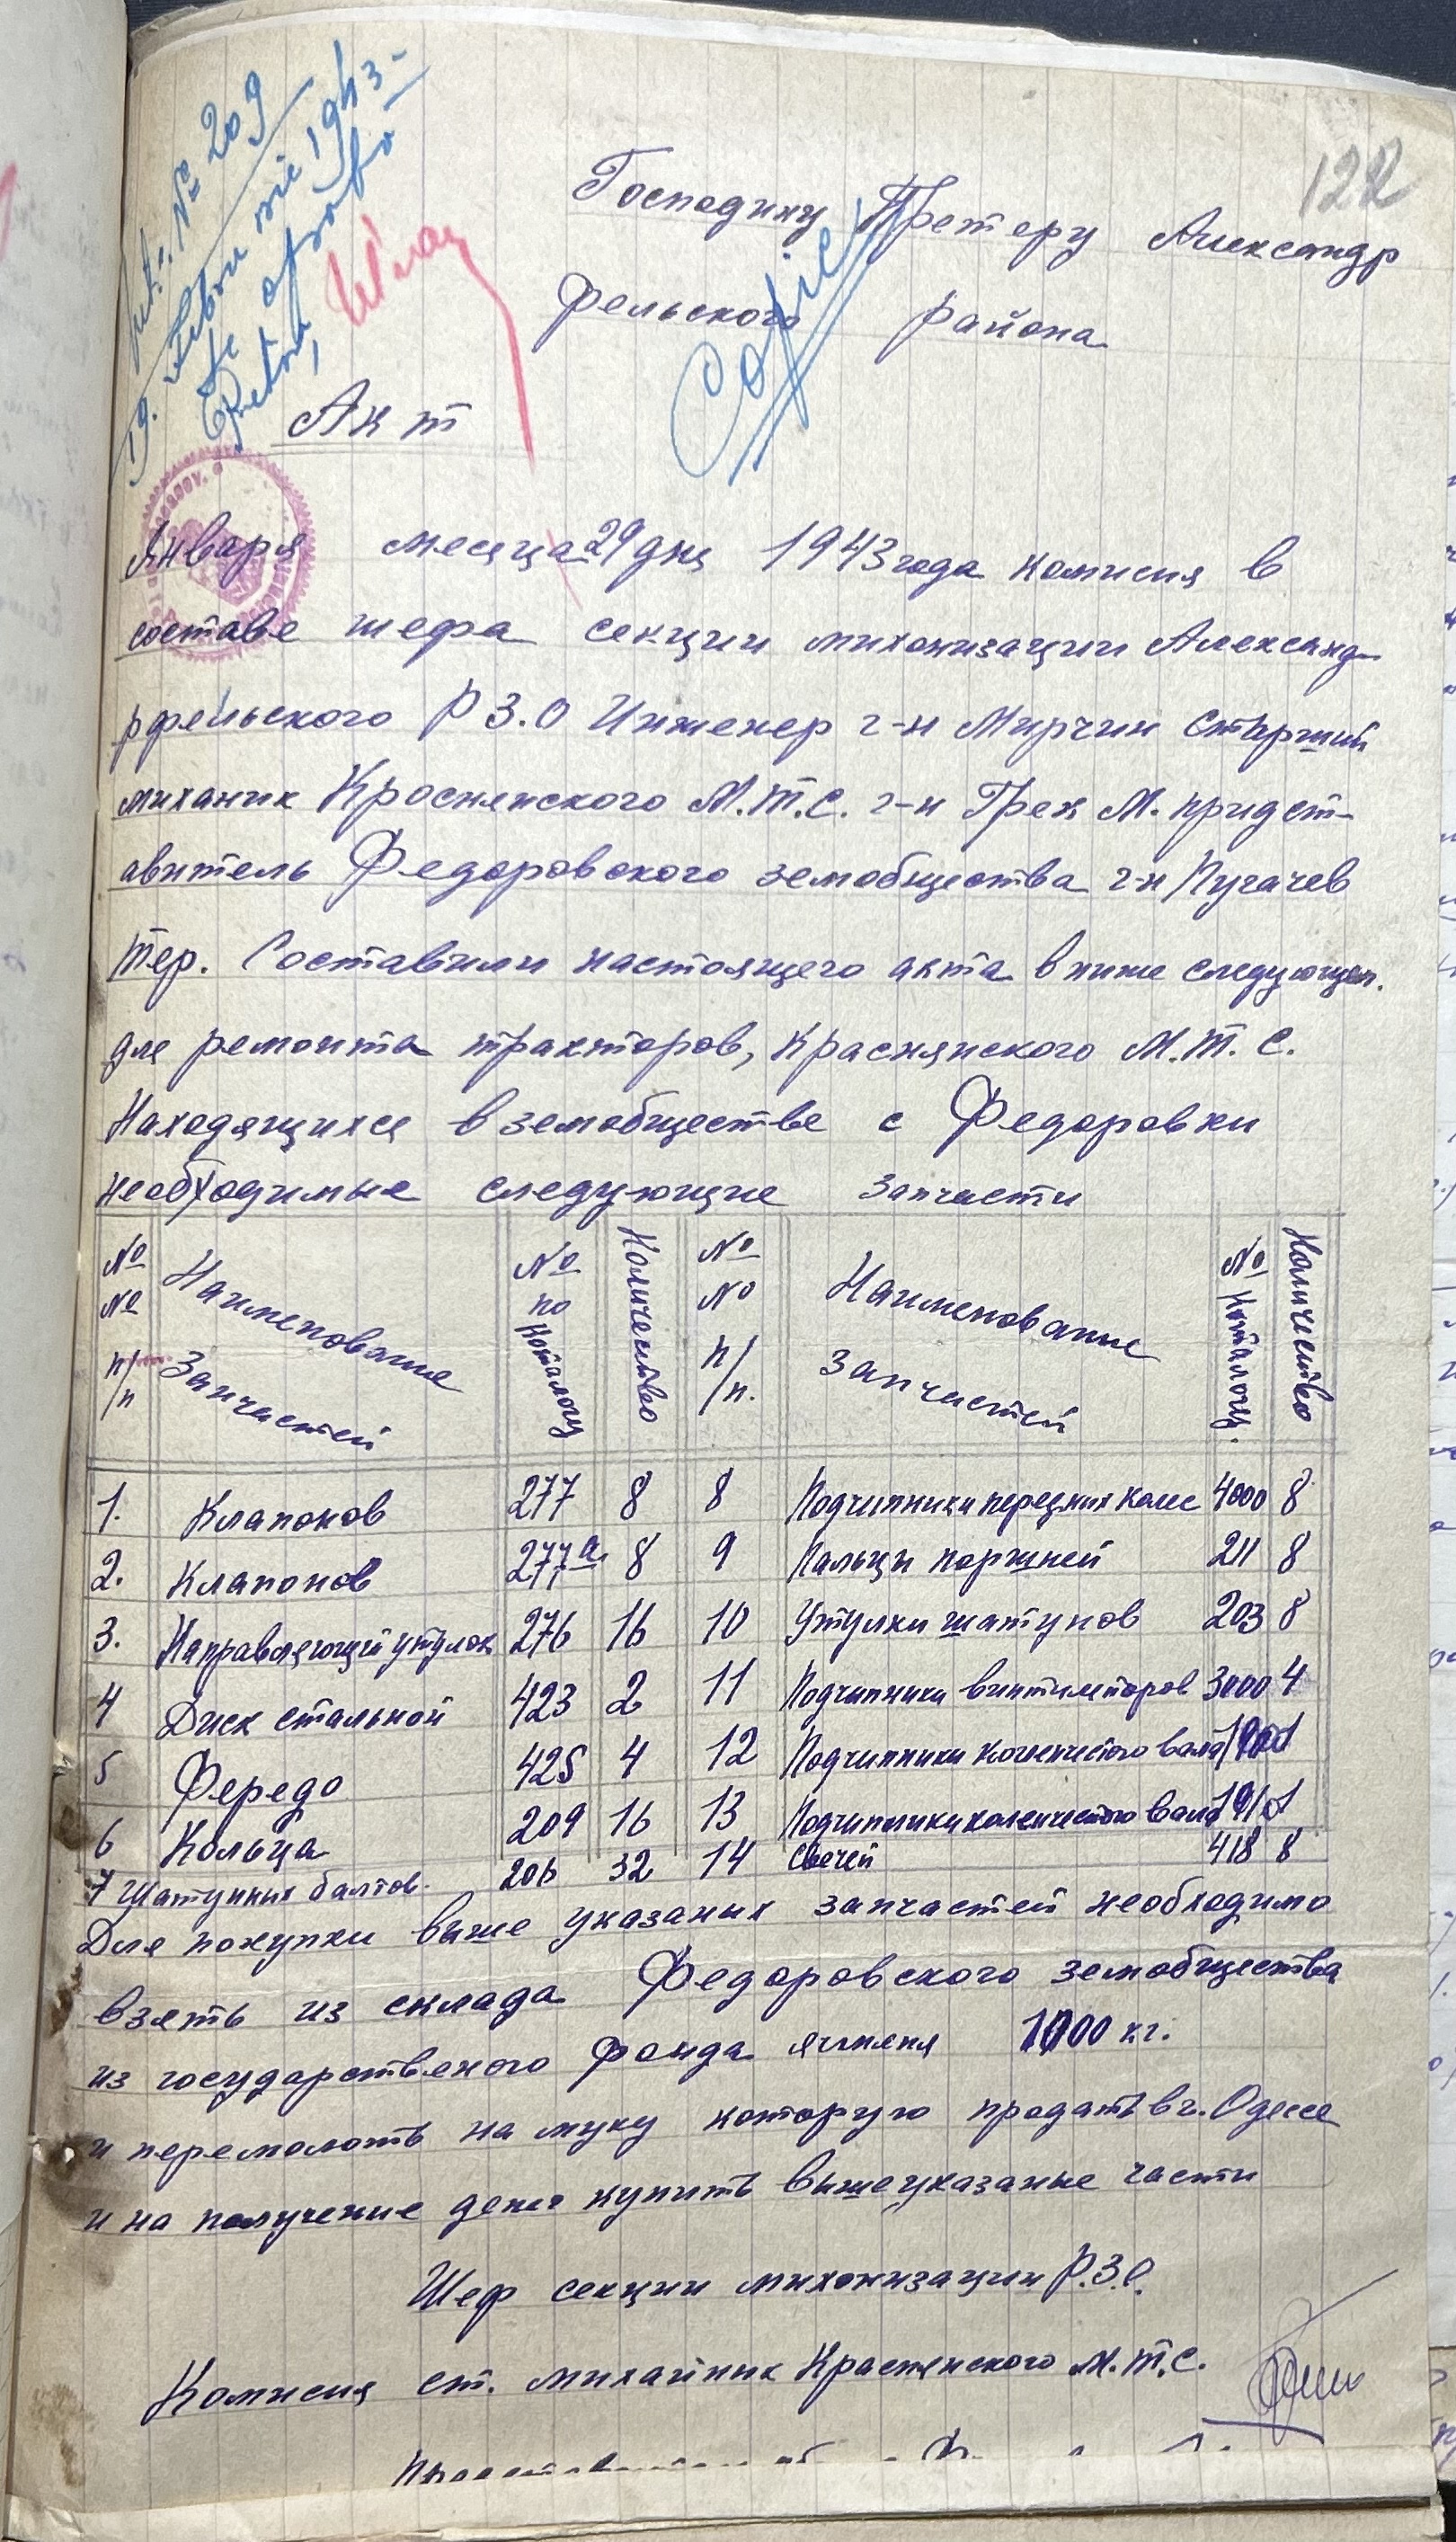 № 209
19. 1943
Copie
122
Господину Претеру Александр
фельского района
Акт
Января месяца 29 дня 1943 года комисия в
составе шефа секции миханизации Александ-
рфельского Р З.О Инженер г-н Мирчин Старший
миханик Кроснянского М.Т.С. г-н Грек М. придст-
авитель Федоровского земобщества г-н Пугачев
Тер. Составили настоящего акта в ниже следующем.
для ремонта тракторов, Краснянского М.Т.С.
Находящихся в земобществе с Федоровки
необходимые следующие запчасти
№ № п/п Наименование Запчастей № по Коталогу Количество № № п/п. Наименование Запчастей № Коталогу. Количество
1. Клапонов 277 8 8 Подчипники передних колес 4000 8
2. Клапонов 277а 8 9 Пальцы поршней 211 8
3. Направляющей утулок 276 16 10 Утулки шатунов 203 8
4 Диск стальной 423 2 11 Подчипники винтиляторов 3000 4
5 Фередо 425 4 12 Подчипники коленчстого вала
6 Кольца 209 16 13 Подчипники коленчстого вала
7 Шатунных балтов. 206 32 14 Свечей 418 8
Для покупки выше указаных запчастей необходимо
взять из склада Федоровского земобщества
из государственого фонда ячменя 1000 кг.
и перемолоть на муку которую продать в г. Одесе
и на получение денег купить вышеуказаные части
Шеф секции миханизации Р.З.О.
Комисия ст. михайник Краснянского М.Т.С.